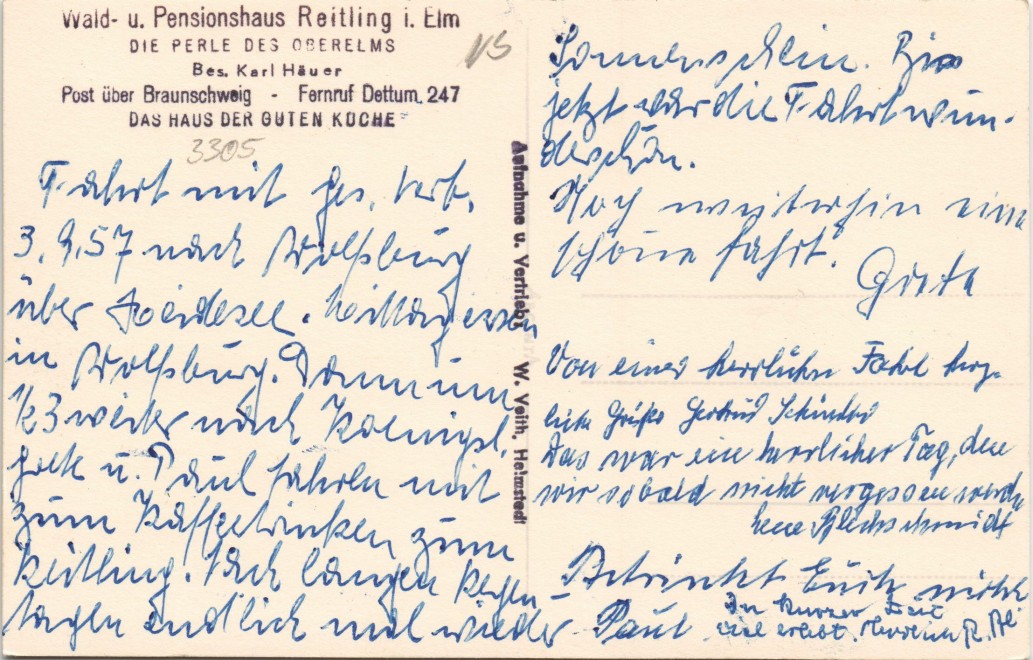 Wald- u. Pensionshaus Reitling i. Elm
DIE PERLE DES OBERELMS
Bes. Karl Häuer
Post über Braunschweig - Fernruf Dettum 247
DAS HAUS DER GUTEN KÜCHE
3305
Fahrt mit
3.9.57 nach Wolfsburg
über Heidesee. Mittagessen
in Wolfsburg. Dann um
1/2 3 weiter nach Koenigsl.
u. Paul fahren mit
zum Kaffeetrinken zum
Reitling. Nach langen Regen-
tagen endlich mal wieder
Sonnenschein. Bis
jetzt war die Fahrt wun-
derschön.
Noch weiterhin eine
schöne Fahrt.
Greta
Von einer herrlichen Fahrt herz-
liche Grüße Gertrud
Das war ein herrlicher Tag, den
wir sobald nicht vergessen werden
Lene Blechschmidt
Betrinkt Euch nicht
Paul
In kurzer Zeit
viel erlebt.
Aufnahme u. Vertrieb: W. Veith, Helmstedt